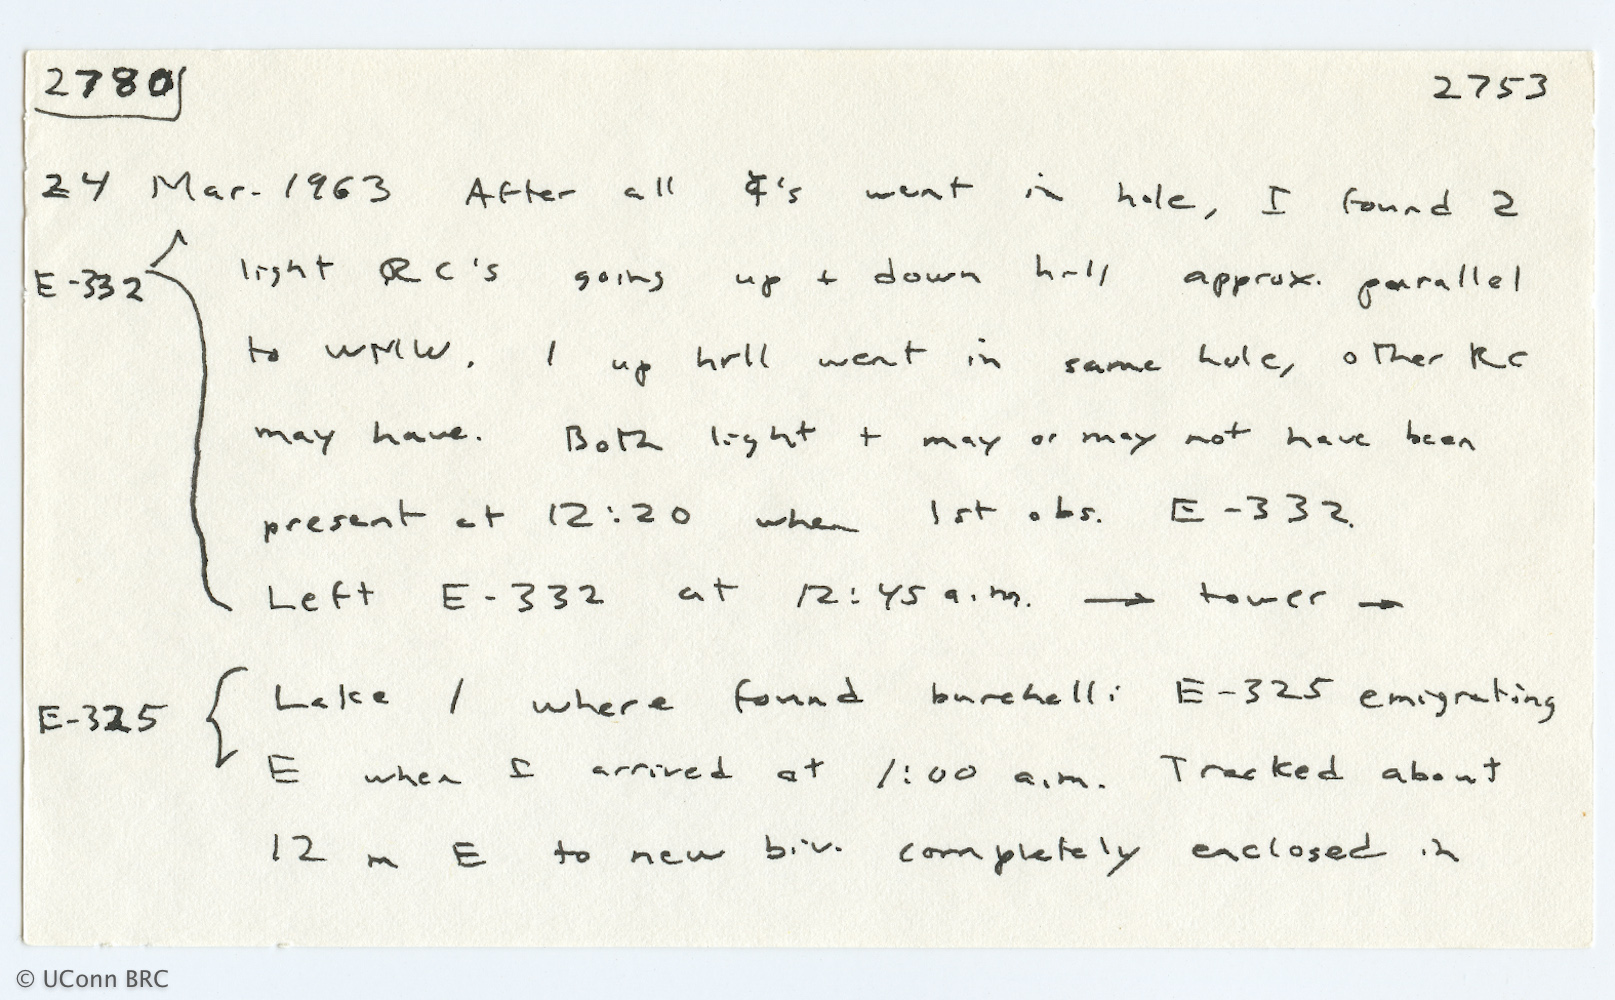 2780 2753
24 Mar. 1963 After all ¢'s went in hole, I found 2
E-332 light RC's going up + down hill approx. parallel
to WNW. 1 up hill went in same hole, other RC
may have. Both light + may or may not have been
present at 12:20 when 1st obs. E-332.
Left E-332 at 12:45 a.m. → tower →
E-325 Lake 1 where found burchelli E-325 emigrating
E when I arrived at 1:00 a.m. Tracked about
12 m E to new biv. completely enclosed in
© UConn BRC